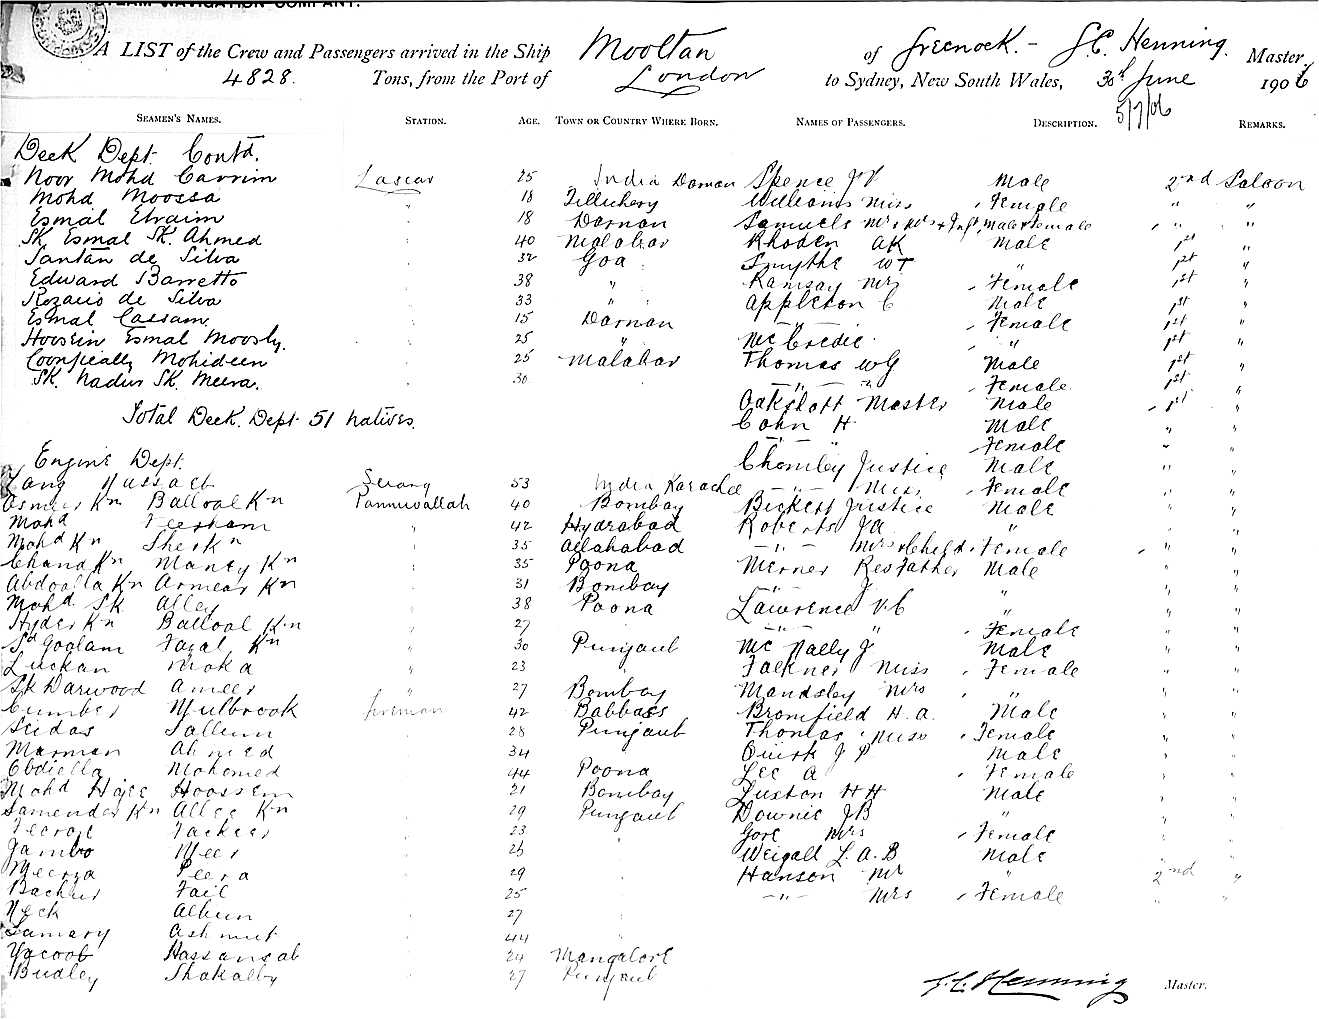 STEAM NAVIGATION COMPANY.
A LIST of the Crew and Passengers arrived in the Ship Mooltan of Greenock. - J.C. Henning. Master,
4828. Tons, from the Port of London to Sydney, New South Wales, 30th June 1906
5/7/06
SEAMEN'S NAMES. STATION. AGE. TOWN OR COUNTRY WHERE BORN. NAMES OF PASSENGERS. DESCRIPTION. REMARKS.
Deck Dept. Contd.
Noor Mohd Carrim Lascar 25 India Daman Spence J V Male 2nd Saloon
Mohd Moossa " 18 Tellichery Williams Miss Female " "
Esmal Ebraim 18 Daman Samuels Mr & Mrs + Inft, Male & Female " "
Sk Esmal Sk. Ahmed 40 Malabar Rhoden AK Male 1st "
Santan de Silva 32 Goa Smythe WT " 1st "
Edward Barretto 38 " Ramsay Mrs Female 1st "
Rozario de Silva 33 " " Appleton C Male 1st "
Esmal Cassam. 15 Daman — " — Female 1st "
Hoosein Esmal Moosly. 25 " McCredie " 1st "
Mohideen 25 Malabar Thomas WG Male 1st "
Sk. Nadur Sk. Meera. 30 — " — " Female 1st "
Oakshott Master Male 1st "
Total Deck. Dept 51 natives. Cohn H. Male " "
— " — Female " "
Engine Dept. Chomley Justice Male " "
Serang 53 India Karachee — " — Miss Female " "
Kn Ballool Kn Panniwallah 40 Bombay Beckett Justice Male " "
Mohd 42 Hydrabad Roberts J A " "
Mohd Kn Sher Kn 35 Allahabad — " — Mrs & Child Female " "
Chand Kn Kn 35 Poona Merner Resfather Male " "
Abdoolla Kn Ameer Kn 31 Bombay J " "
Mohd Sk Alley 38 Poona Lawrence V.C " "
Hyder Kn Ballool Kn 27 — " — " Female "
Sd Goolam Fazal Kn 30 Punjaub McNally J Male "
Luckan Moka 23 " Falkner Miss Female "
Sk Darwood Ameer 27 Bombay Mandsley Mrs " "
Cumber Mulbrook fireman 42 Babbass Bromfield H. A. Male "
Seidas Sallum 28 Punjaub Thomas Miss Female "
Marman Ahmed 34 Quirk J P Male "
Obdiella Mohomed 44 Poona Lee A Female "
Mohd Hajee Hoossein 21 Bombay Luxton H H Male "
Samender Kn Allee Kn 29 Punjaub Downie J B " "
Fackeer 23 Gore Mrs Female "
Jambo Meer 26 Weigall L. A. B Male "
Meerza Peera 29 Hanson Mr " 2nd "
Fail 25 — " — Mrs Female " "
27
44
Yacoob Hassansab 24 Mangalore
Budley 27 Punjaub
J. C. Henning Master.